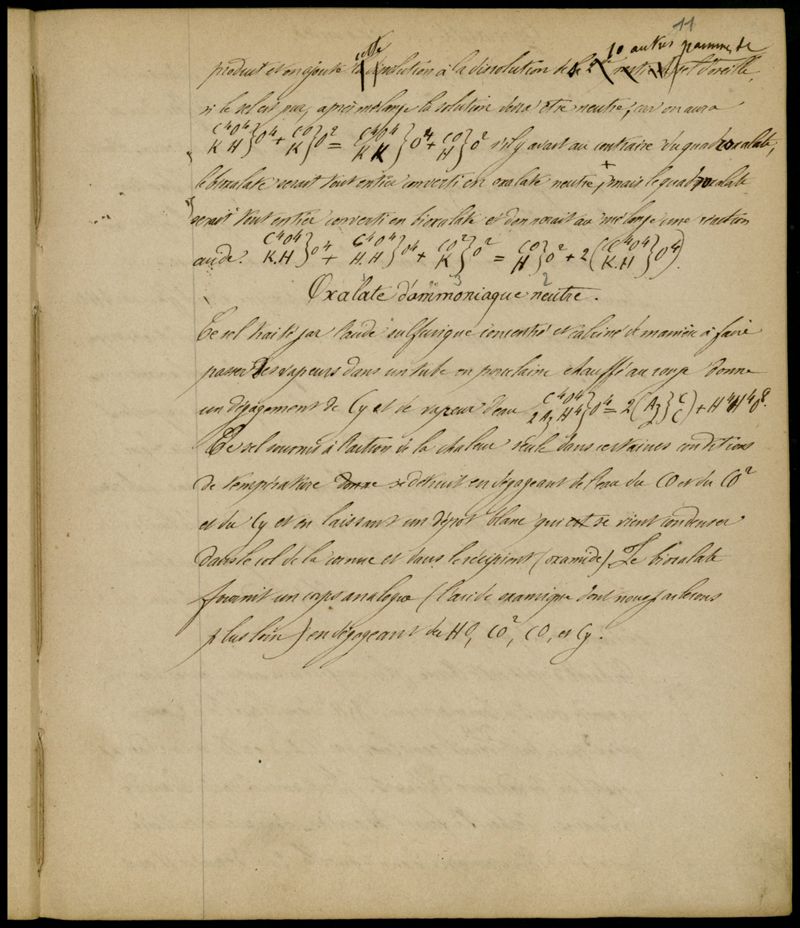 11
10 autres grammes de
produit et on ajoute cette dissolution à la dissolution de sel d'oseille,
si le sel est pur, après mélange la solution devra être neutre, car on aura
C⁴O⁴ K H } O⁴ + CO K } O² = C⁴O⁴ K K } O⁴ + CO H } O² s'il y avait au contraire du quadroxalate,
le bioxalate serait tout entier converti en oxalate neutre, mais le quadroxalate
serait tout entier converti en bioxalate et donnerait au mélange une réaction
acide. C⁴O⁴ K.H } O⁴ + C⁴O⁴ H.H } O⁴ + CO² K } O² = CO H } O² + 2 ( C⁴O⁴ K.H } O⁴ ).
Oxalate d'ammoniaque neutre.
Ce sel traité par l'acide sulfurique concentré et calciné de manière à faire
passer les vapeurs dans un tube en porcelaine chauffé au rouge donne
un dégagement de Cy et de vapeur d'eau C⁴O⁴ 2 Az H⁴ } O⁴ = 2 ( Az } C C ) + H⁴H⁴O⁸.
Ce sel soumis à l'action de la chaleur seule dans certaines conditions
de température donne se détruit en dégageant de l'eau du CO et du CO²
et du Cy et en laissant un dépôt blanc qui est se vient condenser
dans le col de la cornue et dans le récipient (oxamide). Le bioxalate
fournit un corps analogue (l'acide oxamique dont nous parlerons
plus loin) en dégageant du HO, CO², CO, et Cy.